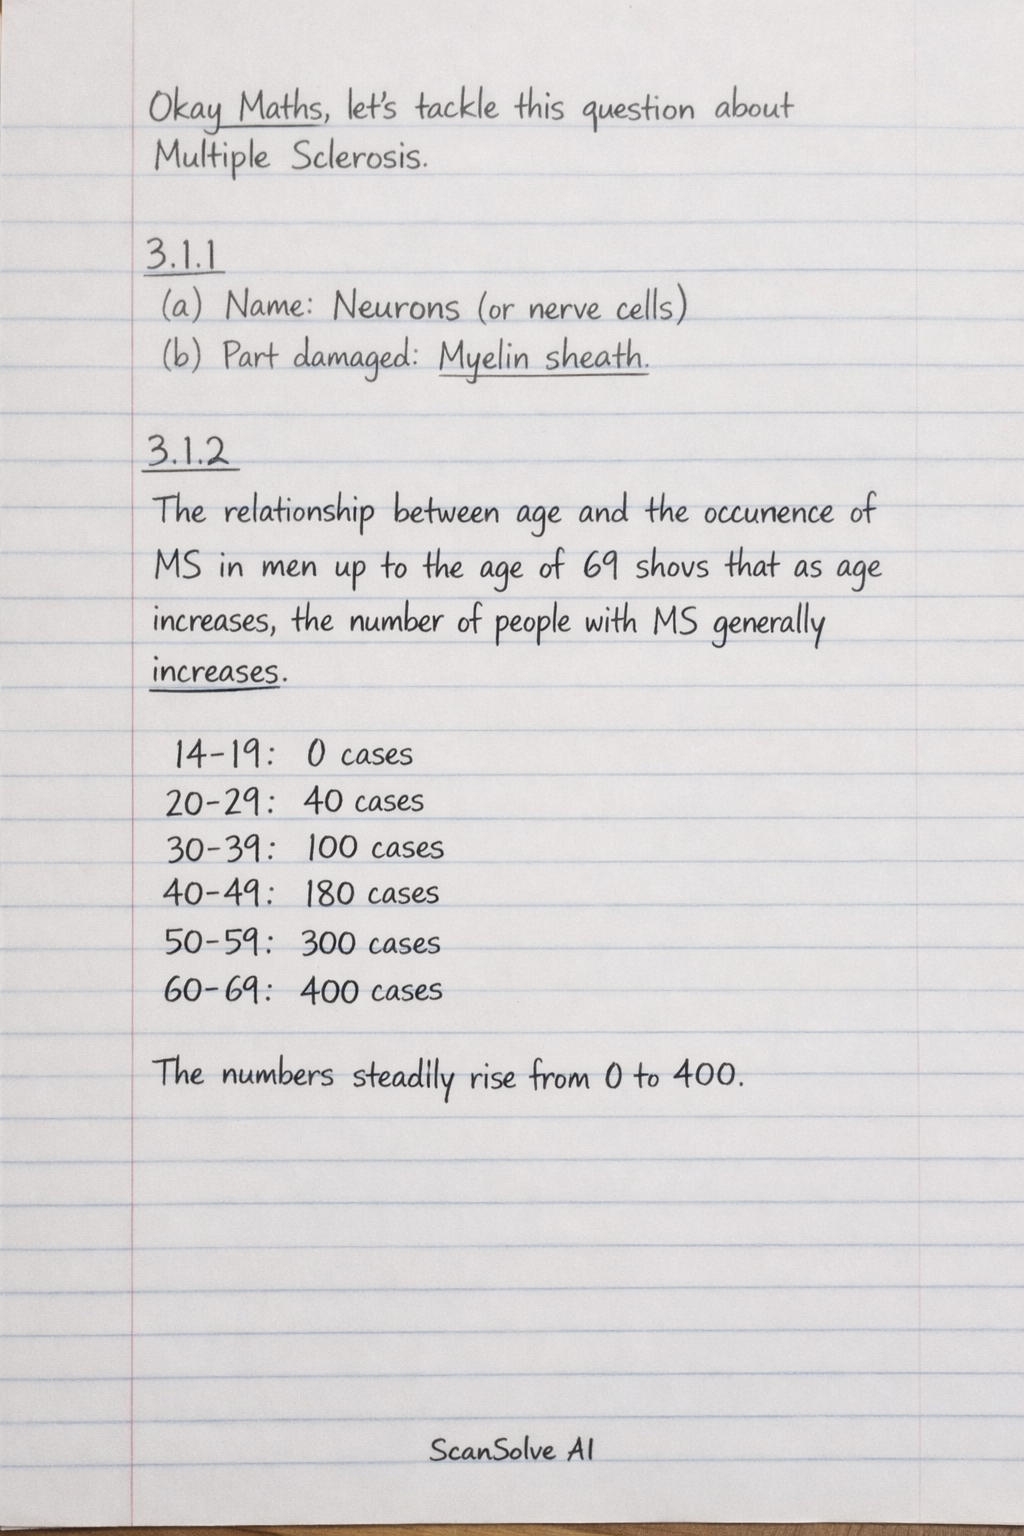 Okay Maths, let's tackle this question about
Multiple Sclerosis.
3.1.1
(a) Name: Neurons (or nerve cells)
(b) Part damaged: Myelin sheath.
3.1.2
The relationship between age and the occunence of
MS in men up to the age of 69 shovs that as age
increases, the number of people with MS generally
increases.
14-19: 0 cases
20-29: 40 cases
30-39: 100 cases
40-49: 180 cases
50-59: 300 cases
60-69: 400 cases
The numbers steadily rise from 0 to 400.
ScanSolve AI